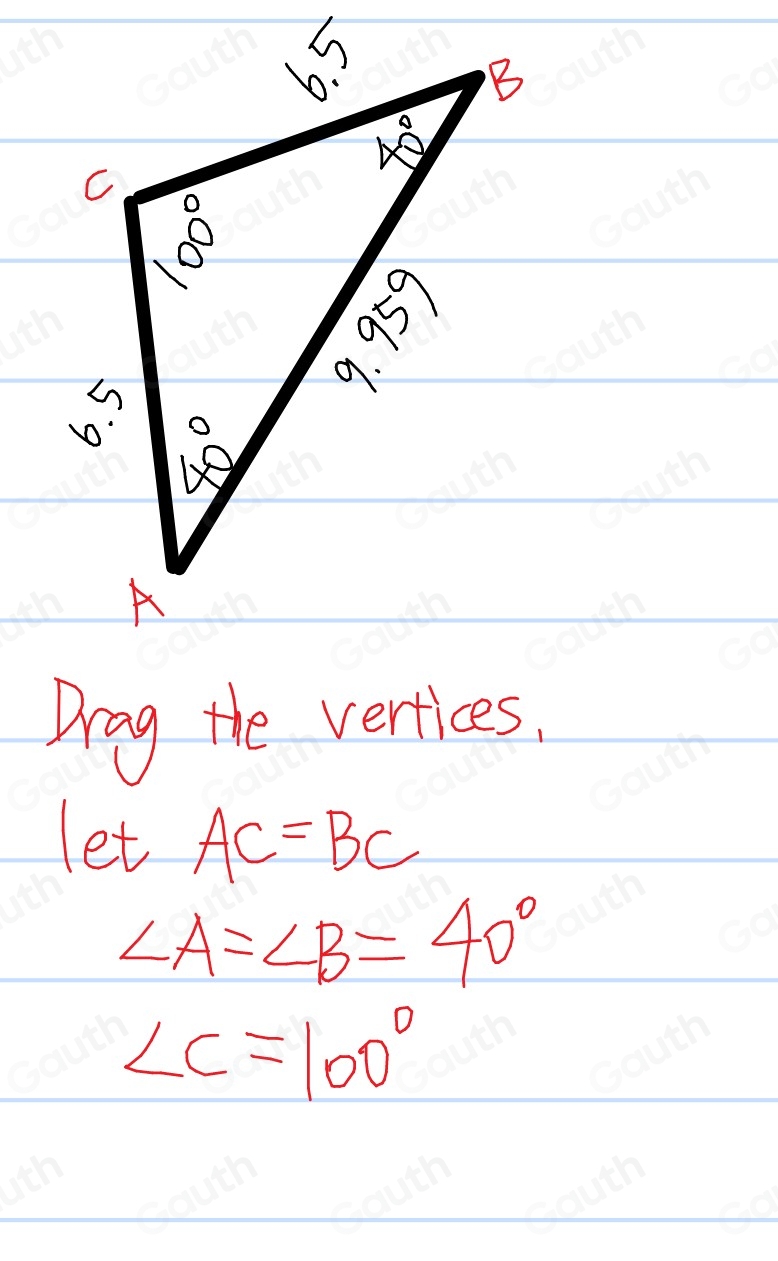 6.5
B
40°
C
100°
9.959
6.5
40°
A
Drag the vertices,
let AC=BC
∠A=∠B=40°
∠C=100°
Gauth